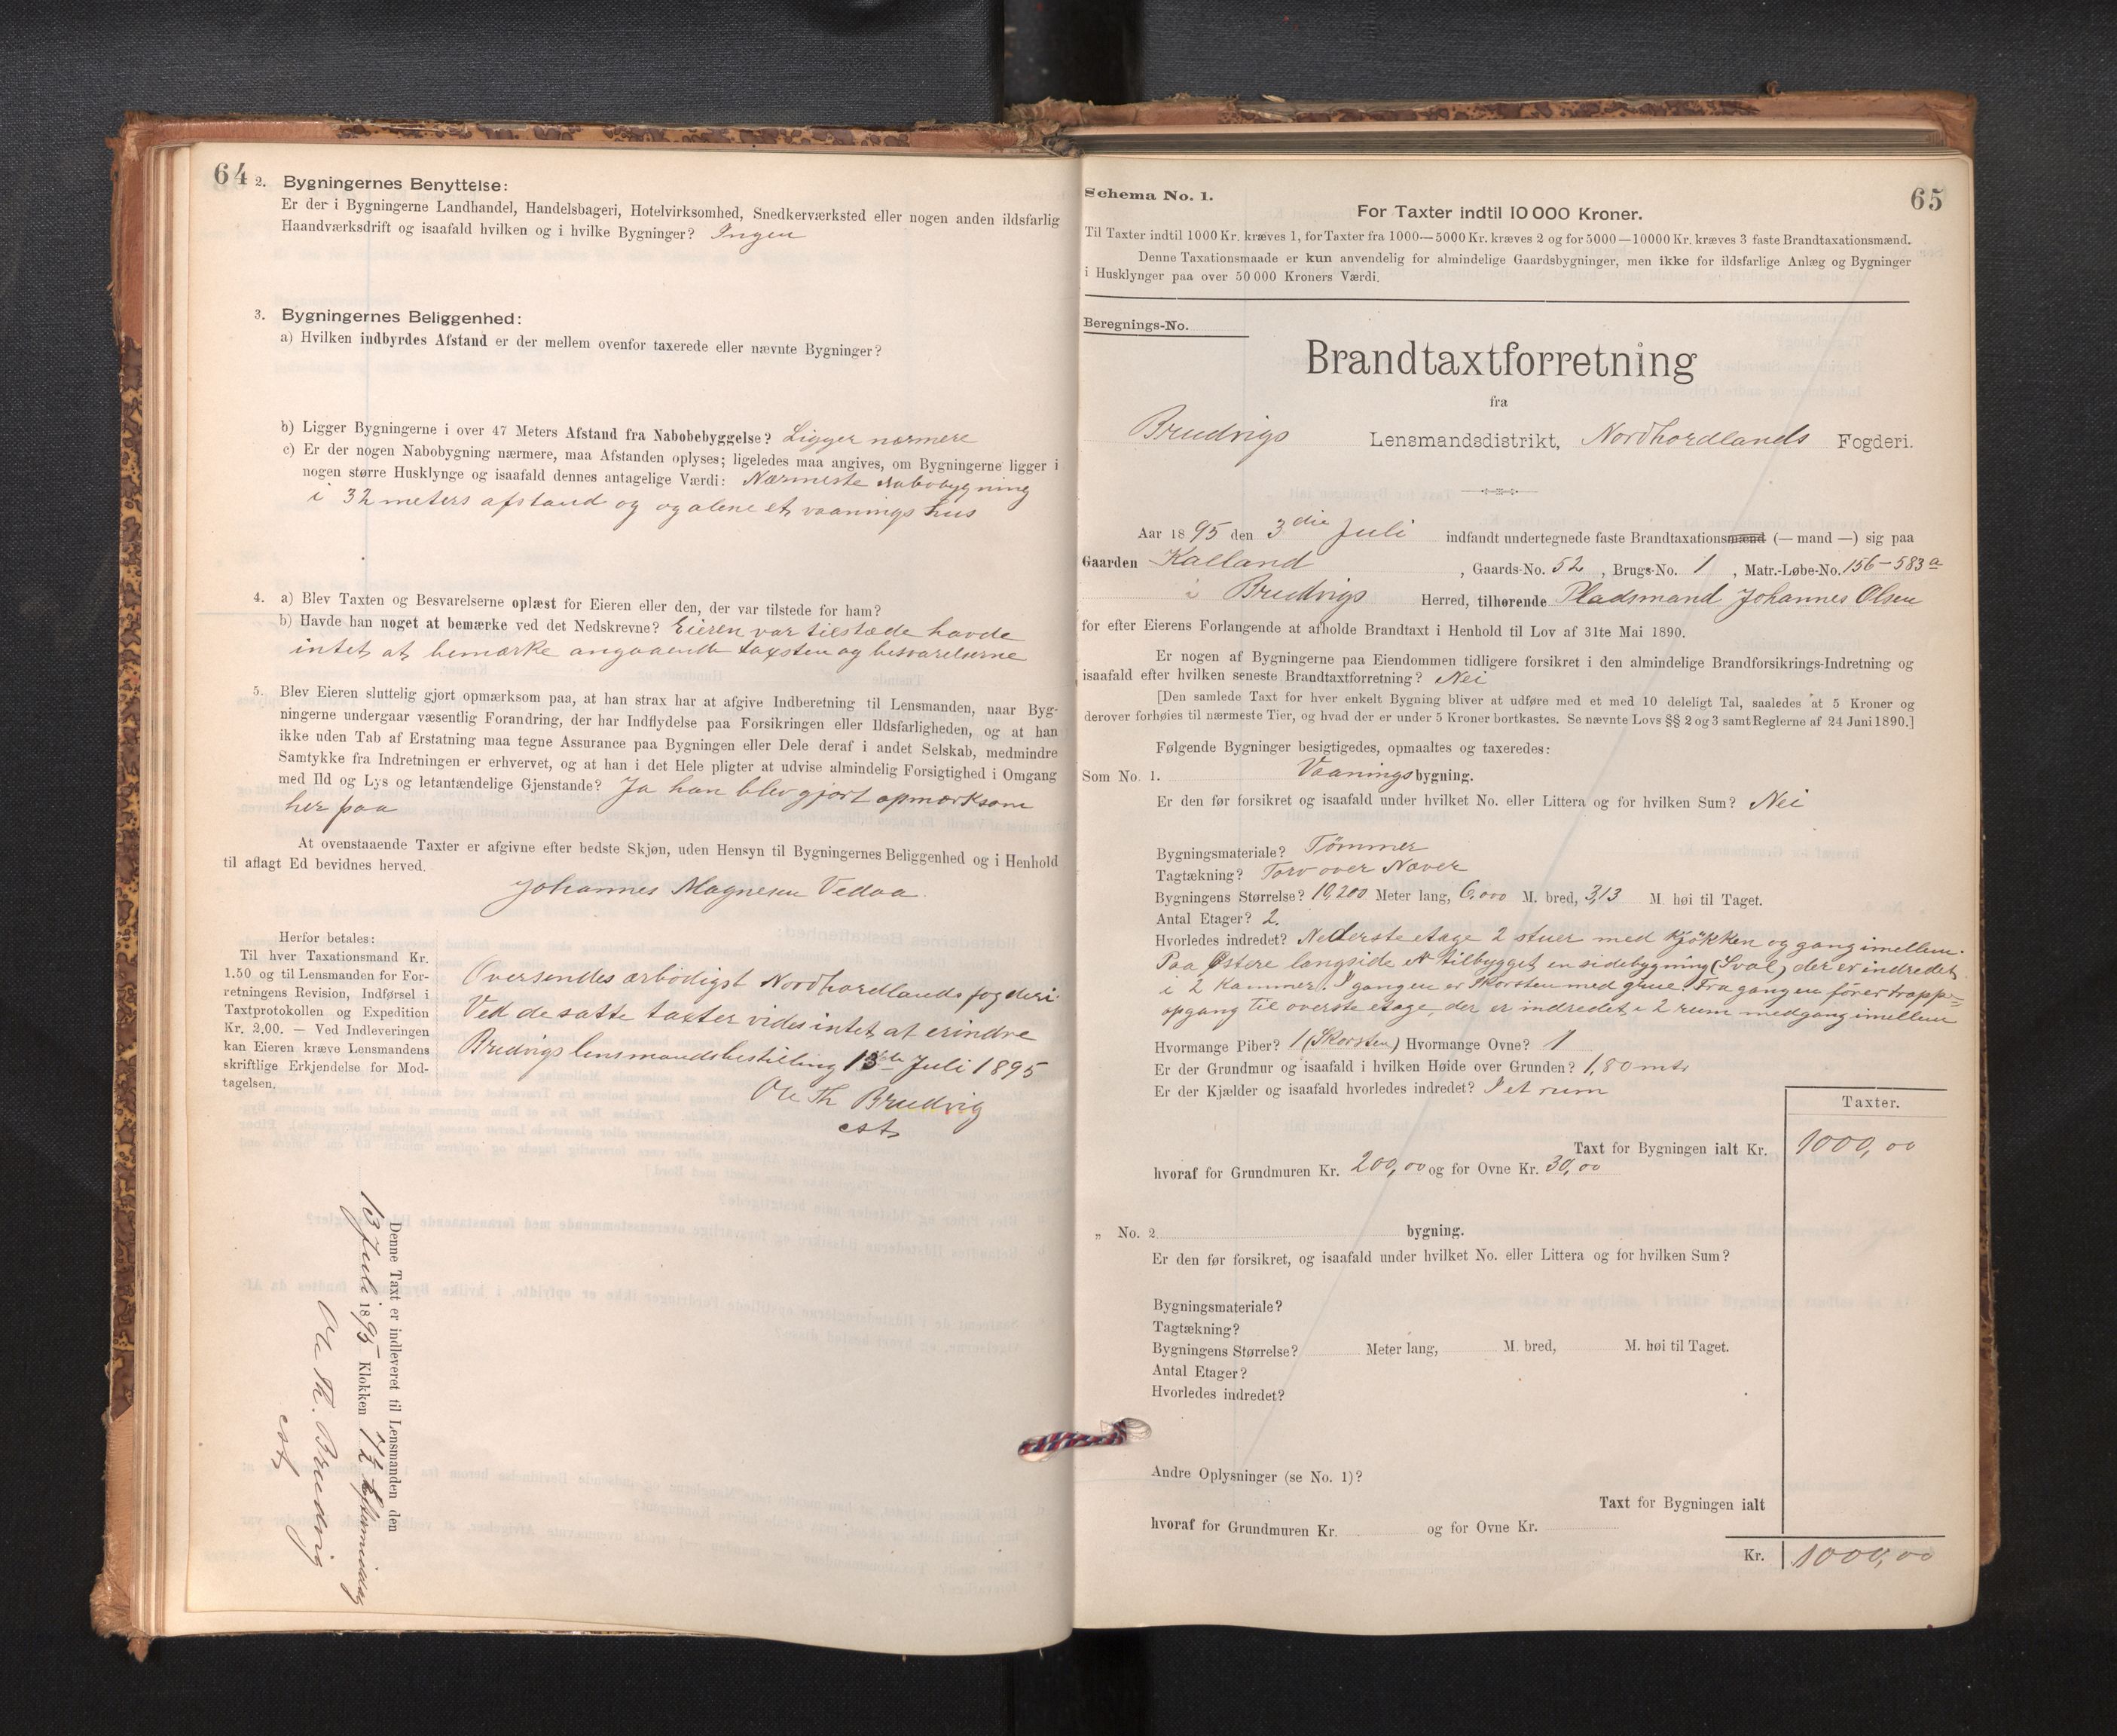 64
2. Bygningernes Benyttelse:
Er der i Bygningerne Landhandel, Handelsbageri, Hotelvirksomhed, Snedkerværksted eller nogen anden ildsfarlig
Haandværksdrift og isaafald hvilken og i hvilke Bygninger? Ingen
3. Bygningernes Beliggenhed:
a) Hvilken indbyrdes Afstand er der mellem ovenfor taxerede eller nævnte Bygninger?
b) Ligger Bygningerne i over 47 Meters Afstand fra Nabobebyggelse? Ligger nærmere
c) Er der nogen Nabobygning nærmere, maa Afstanden oplyses; ligeledes maa angives, om Bygningerne ligger i
nogen større Husklynge og isaafald dennes antagelige Værdi: Nærmeste nabobygning
i 32 meters afstand og og alene et vaaningshus
4. a) Blev Taxten og Besvarelserne oplæst for Eieren eller den, der var tilstede for ham?
b) Havde han noget at bemærke ved det Nedskrevne? Eieren var tilstede havde
intet at bemærke angaaende taxsten og besvarelserne
5. Blev Eieren sluttelig gjort opmærksom paa, at han strax har at afgive Indberetning til Lensmanden, naar Byg-
ningerne undergaar væsentlig Forandring, der har Indflydelse paa Forsikringen eller Ildsfarligheden, og at han
ikke uden Tab af Erstatning maa tegne Assurance paa Bygningen eller Dele deraf i andet Selskab, medmindre
Samtykke fra Indretningen er erhvervet, og at han i det Hele pligter at udvise almindelig Forsigtighed i Omgang
med Ild og Lys og letantændelige Gjenstande? Ja han blev gjort opmærksom
her paa
At ovenstaaende Taxter er afgivne efter bedste Skjøn, uden Hensyn til Bygningernes Beliggenhed og i Henhold
til aflagt Ed bevidnes herved.
Johannes Magnesen Vedaa
Herfor betales:
Til hver Taxationsmand Kr.
1.50 og til Lensmanden for For-
retningens Revision, Indførsel i
Taxtprotokollen og Expedition
Kr. 2.00. — Ved Indleveringen
kan Eieren kræve Lensmandens
skriftlige Erkjendelse for Mod-
tagelsen.
Oversendes ærbødigst Nordhordlands fogderi.
Ved de satte taxter vides intet at erindre
Brudvigs lensmandsbestilling 13de Juli 1895
Ole Th Brudvig
cst
Denne Taxt er indleveret til Lensmanden den
13 Juli 1895 Klokken 7½ Eftermiddag
Ole Th. Brudvig
cst
65
Schema No. 1.
For Taxter indtil 10 000 Kroner.
Til Taxter indtil 1000 Kr. kræves 1, for Taxter fra 1000—5000 Kr. kræves 2 og for 5000—10000 Kr. kræves 3 faste Brandtaxationsmænd.
Denne Taxationsmaade er kun anvendelig for almindelige Gaardsbygninger, men ikke for ildsfarlige Anlæg og Bygninger
i Husklynger paa over 50 000 Kroners Værdi.
Beregnings-No.
Brandtaxtforretning
fra
Brudvigs Lensmandsdistrikt, Nordhordlands Fogderi.
Aar 1895 den 3die Juli indfandt undertegnede faste Brandtaxationsmænd (— mand —) sig paa
Gaarden Kalland, Gaards-No. 52, Brugs-No. 1, Matr.-Løbe-No. 156-583a
i Brudvigs Herred, tilhørende Pladsmand Johannes Olsen
for efter Eierens Forlangende at afholde Brandtaxt i Henhold til Lov af 31te Mai 1890.
Er nogen af Bygningerne paa Eiendommen tidligere forsikret i den almindelige Brandforsikrings-Indretning og
isaafald efter hvilken seneste Brandtaxtforretning? Nei
[Den samlede Taxt for hver enkelt Bygning bliver at udføre med et med 10 deleligt Tal, saaledes at 5 Kroner og
derover forhøies til nærmeste Tier, og hvad der er under 5 Kroner bortkastes. Se nævnte Lovs §§ 2 og 3 samt Reglerne af 24 Juni 1890.]
Følgende Bygninger besigtigedes, opmaaltes og taxeredes:
Som No. 1. Vaaningsbygning.
Er den før forsikret og isaafald under hvilket No. eller Littera og for hvilken Sum? Nei
Bygningsmateriale? Tømmer
Tagtækning? Torv over Næver
Bygningens Størrelse? 10,200 Meter lang, 6,000 M. bred, 3,13 M. høi til Taget.
Antal Etager? 2.
Hvorledes indredet? Nederste etage 2 stuer med kjøkken og gang imellem.
Paa Østere langside et tilbygget en sidebygning (Sval) der er indredet
i 2 kammer. I gangen er skorsten med grue. Fra gangen fører trappe=
opgang til øverste etage, der er indredet i 2 rum med gang imellem
Hvormange Piber? 1 (Skorsten) Hvormange Ovne? 1
Er der Grundmur og isaafald i hvilken Høide over Grunden? 1,80 mtr
Er der Kjælder og isaafald hvorledes indredet? I et rum
Taxter.
Taxt for Bygningen ialt Kr. 1000,00
hvoraf for Grundmuren Kr. 200,00 og for Ovne Kr. 30,00
„ No. 2 bygning.
Er den før forsikret, og isaafald under hvilket No. eller Littera og for hvilken Sum?
Bygningsmateriale?
Tagtækning?
Bygningens Størrelse? Meter lang, M. bred, M. høi til Taget.
Antal Etager?
Hvorledes indredet?
Andre Oplysninger (se No. 1)?
Taxt for Bygningen ialt
hvoraf for Grundmuren Kr. og for Ovne Kr.
Kr. 1000,00